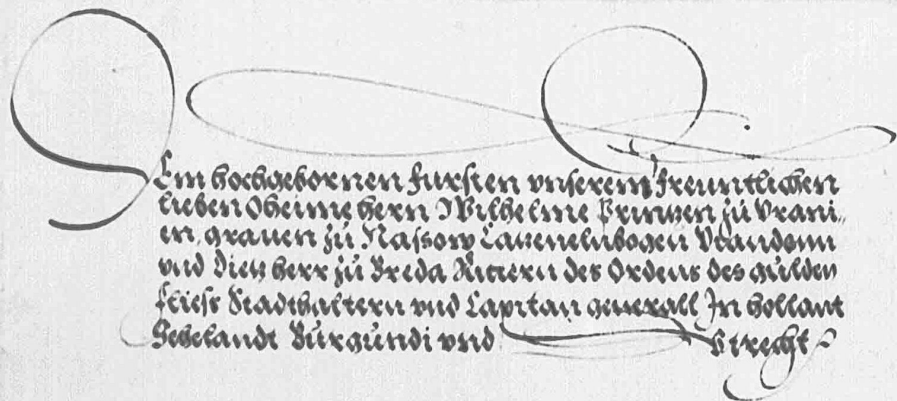 Dem hochgebornen Fursten vnserem freuntlichen
lieben Oheime hern Wilhelme Printzen zu Vrani
en, grauen zu Nassow Catzenelnbogen Viandenn
vnd Dietz herr zu Breda Rittern des Ordens des gulden
fliess Stadthaltern vnd Capitan generall In hollant
Sehelandt Burgundi vnd Vtrecht